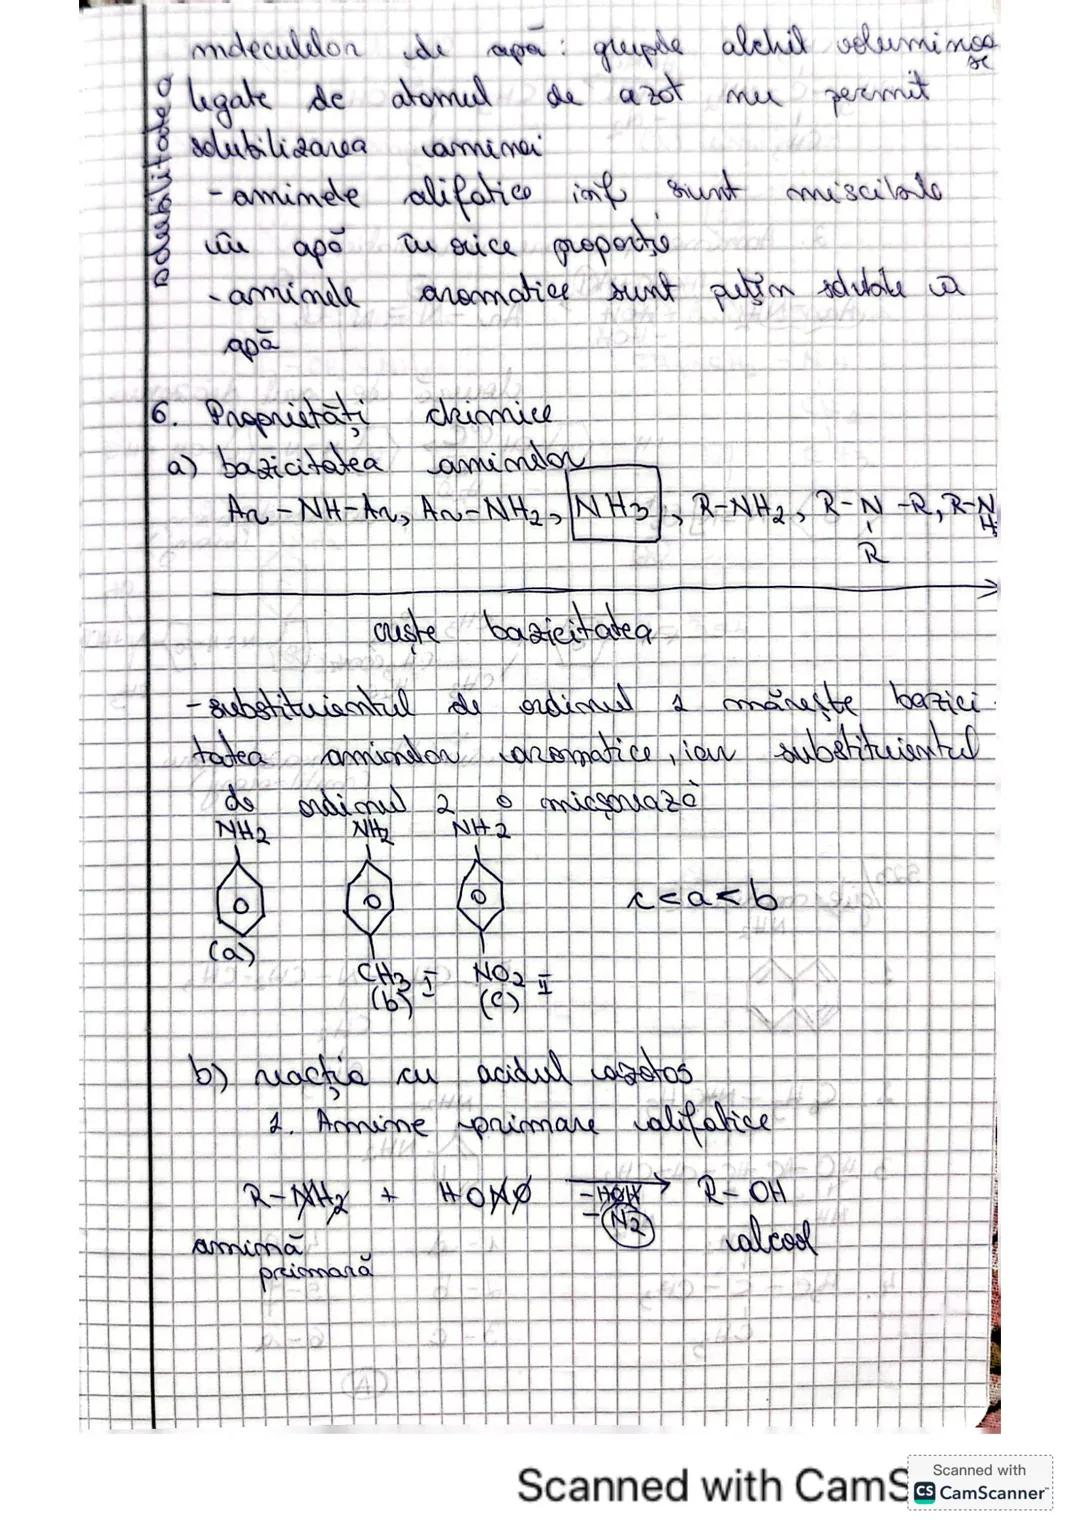 moleculelor de apă: grupele alchil voluminoase
legate de atomul de azot nu permit
solubilizarea aminei
-aminele alifatice inf sunt miscibile
cu apă în orice proporție
-aminele aromatice sunt puțin solubile în
apă
solubilitatea
6. Proprietăți chimice
a) bazicitatea aminelor
Ar-NH-Ar, Ar-NH2, NH3, R-NH2, R-N-R, R-N
H
R
crește bazicitatea
-substituientul de ordinul 1 mărește bazici
tatea aminelor aromatice, iar substituientul
de ordinul 2 o micșorează
NH2 NH2 NH2
c<a<b
(a)
CH3 I NO2 II
(b) (c)
b) reacția cu acidul azotos
1. Amine primare alifatice
R-NH2 + HONO -HOH R-OH
-N2
amină alcool
primară
Scanned with CamS
Scanned with
CS CamScanner